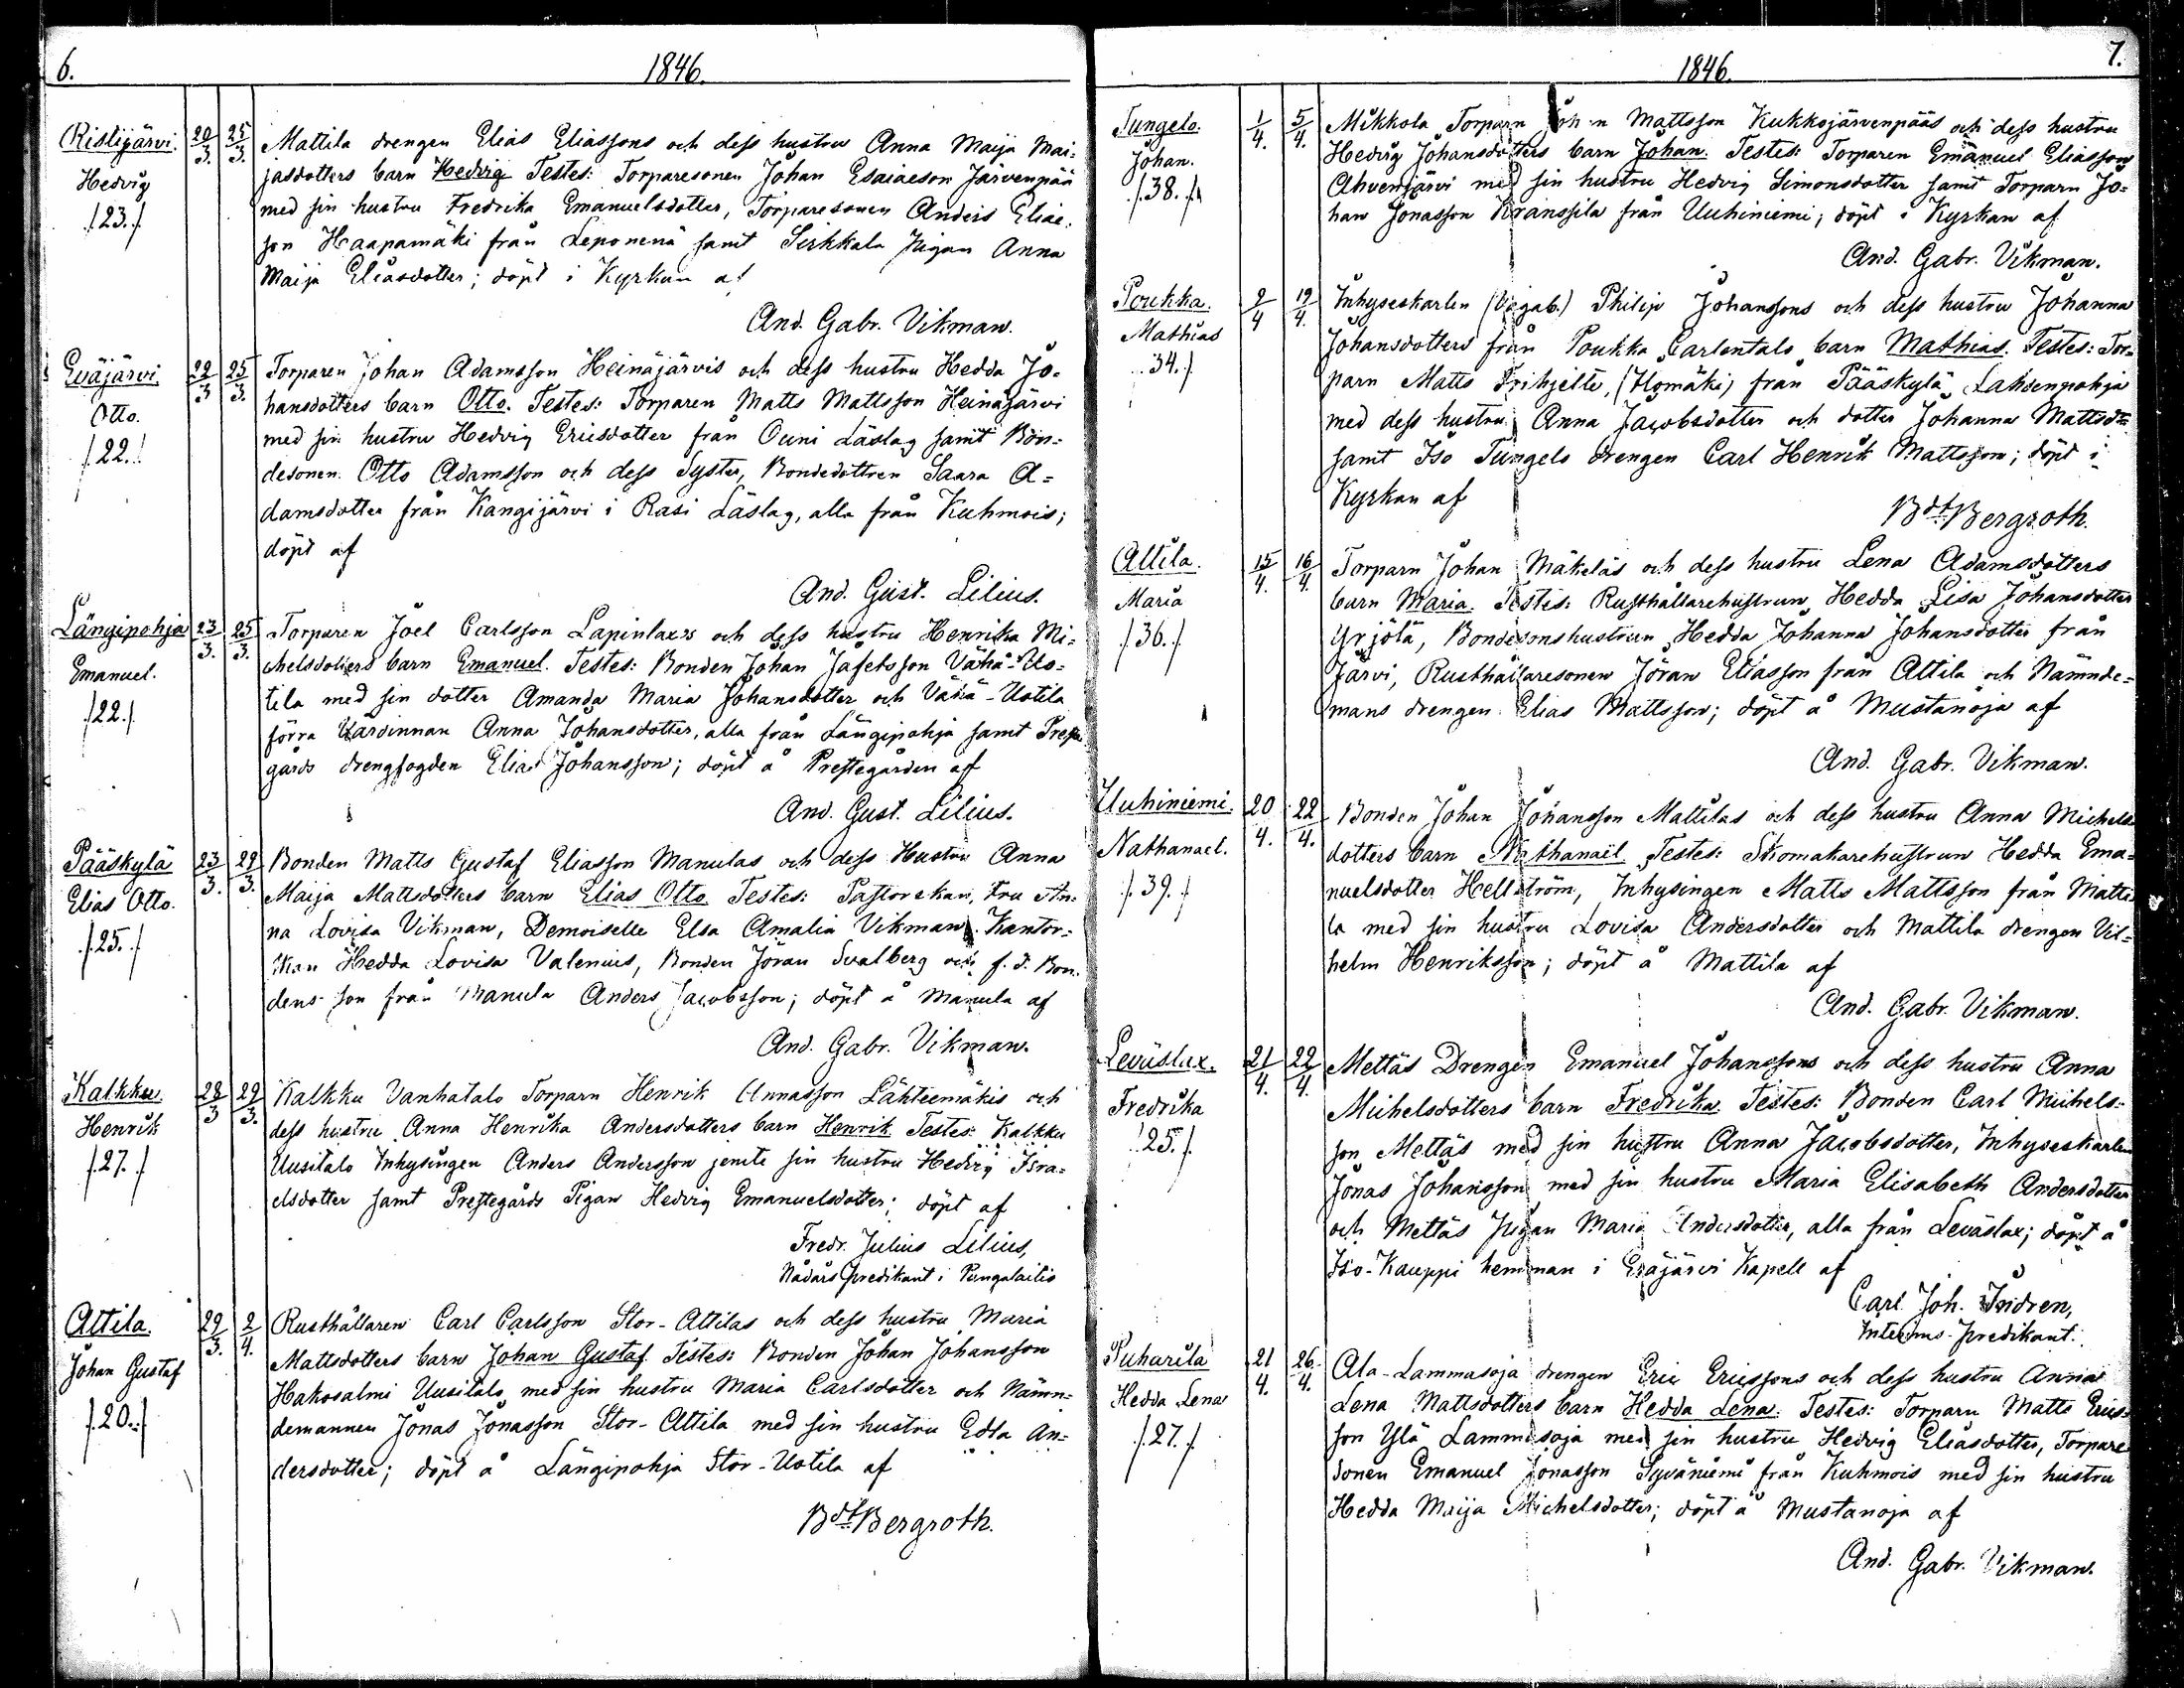 6.
1846.
Ristijärvi. 20/3. 25/3. Mattila drengen Elias Eliassons och dess hustru Anna Maija Mai-
Hedvig jasdotters barn Hedvig Testes: Torparesonen Johan Esaiaeson Järvenpää
/23./ med sin hustru Fredrika Emanuelsdotter, Torparesonen Anders Eliae.
son Haapamäki från Leponenä samt Sirkkala Pigan Anna
Maija Eliasdotter; döpt i Kyrkan af
And. Gabr. Vikman.
Eväjärvi. 22/3 25/3. Torparen Johan Adamsson Heinäjärvis och dess hustru Hedda Jo-
Otto. hansdotters barn Otto. Testes: Torparen Matts Mattsson Heinäjärvi
/22./ med sin hustru Hedvig Ericsdotter från Ouni Läslag samt Bon-
desonen Otto Adamsson och dess Syster, Bondedottren Saara A-
damsdotter från Kangijärvi i Rasi Läslag, alla från Kuhmois;
döpt af
And. Gust. Lilius.
Längipohja 23/3. 25/3. Torparen Joel Carlsson Lapinlaxs och dess hustru Henrika Mi-
Emanuel. chelsdotters barn Emanuel. Testes: Bonden Johan Jafetsson Vähä-Uo-
/22./ tila med sin dotter Amanda Maria Johansdotter och Vähä-Uotila
förra Värdinnan Anna Johansdotter, alla från Längipohja samt Preste
gårds drengfogden Elias Johansson; döpt å Prestegården af
And. Gust. Lilius.
Pääskylä 23/3. 29/3. Bonden Matts Gustaf Eliasson Manulas och dess Hustru Anna
Elias Otto. Maija Mattsdotters barn Elias Otto. Testes: Pastorskan, Fru An-
/25./ na Lovisa Vikman, Demoiselle Elsa Amalia Vikman, Kantor-
skan Hedda Lovisa Valenius, Bonden Jöran Svalberg och f. d. Bon-
dens son från Manula Anders Jacobsson; döpt å Manula af
And. Gabr. Vikman.
Kalkku. 28/3 29/3. Kalkku Vanhatalo Torparn Henrik Annasson Lähteenmäkis och
Henrik dess hustru Anna Henrika Andersdotters barn Henrik Testes: Kalkku
/27./ Uusitalo Inhysingen Anders Andersson jemte sin hustru Hedvig Isra-
elsdotter samt Prestegårds Pigan Hedvig Emanuelsdotter; döpt af
Fredr. Julius Lilius,
Nådårs predikant i Pungalaitis
Attila. 29/3. 2/4. Rusthållaren Carl Carlsson Stor-Attilas och dess hustru Maria
Johan Gustaf Mattsdotters barn Johan Gustaf. Testes: Bonden Johan Johansson
/20./ Hakosalmi Uusitalo med sin hustru Maria Carlsdotter och Nämn-
demannen Jonas Jonasson Stor-Attila med sin hustru Edla An-
dersdotter; döpt å Längipohja Stor-Uotila af
Bdt Bergroth.
7.
1846.
Tungelo. 1/4. 5/4. Mikkola Torparn Johan Mattsson Kukkojärvenpääs och dess hustru
Johan. Hedvig Johansdotters barn Johan. Testes: Torparen Emanuel Eliasson
/38./ Ahvenjärvi med sin hustru Hedvig Simonsdotter samt Torparn Jo-
han Jonasson Kranssila från Uuhiniemi; döpt i Kyrkan af
And. Gabr. Vikman.
Poukka. 9/4 19/4. Inhyseskarlen (Vagab.) Philip Johanssons och dess hustru Johanna
Mathias Johansdotters från Poukka Carlontalo barn Mathias. Testes: Tor-
/34./ parn Matts Frihjelte, (Homäki) från Pääskylä Lahdenpohja
med dess hustru Anna Jacobsdotter och dotter Johanna Mattsdtr
samt Iso Tungelo drengen Carl Henrik Mattsson; döpt i
Kyrkan af
Bdt Bergroth.
Attila. 15/4. 16/4. Torparn Johan Mäkeläs och dess hustru Lena Adamsdotters
Maria barn Maria. Testes: Rusthållarehustrun Hedda Lisa Johansdotter
/36./ Yrjölä, Bondesonshustrun Hedda Johanna Johansdotter från
Järvi, Rusthållaresonen Jöran Eliasson från Attila och Nämnde-
mans drengen Elias Mattsson; döpt å Mustanoja af
And. Gabr. Vikman.
Uuhiniemi. 20/4. 22/4. Bonden Johan Johansson Mattilas och dess hustru Anna Michels
Nathanael. dotters barn Nathanaël Testes: Skomakarehustrun Hedda Ema-
/39./ nuelsdotter Hellström, Inhysingen Matts Mattsson från Matti-
la med sin hustru Lovisa Andersdotter och Mattila drengen Vil-
helm Henriksson; döpt å Mattila af
And. Gabr. Vikman.
Leväslax. 21/4. 22/4. Mettäs Drengen Emanuel Johanssons och dess hustru Anna
Fredrika Michelsdotters barn Fredrika. Testes: Bonden Carl Michels-
/25./ son Mettäs med sin hustru Anna Jacobsdotter, Inhyseskarlen
Jonas Johansson med sin hustru Maria Elisabeth Andersdotter
och Mettäs Pigan Maria Andersdotter, alla från Leväslax; döpt å
Iso-Kauppi hemman i Eräjärvi Kapell af
Carl Joh. Indren,
Interims-predikant.
Puharila 21/4. 26/4. Ala-Lammasoja drengen Eric Ericssons och dess hustru Anna
Hedda Lena Lena Mattsdotters barn Hedda Lena. Testes: Torparn Matts Erics-
/27./ son Ylä Lammasoja med sin hustru Hedvig Eliasdotter, Torpare
sonen Emanuel Jonasson Syväniemi från Kuhmois med sin hustru
Hedda Maija Michelsdotter; döpt å Mustanoja af
And. Gabr. Vikman.